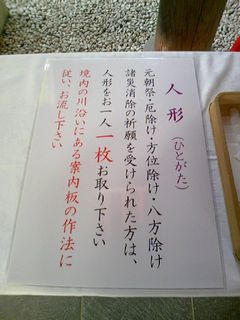 人形(ひとがた)
元朝祭・厄除け・方位除け・八方除け
諸災消除の祈願を受けられた方は、
人形をお一人一枚お取り下さい
境内の川沿いにある案内板の作法に
従い、お流し下さい